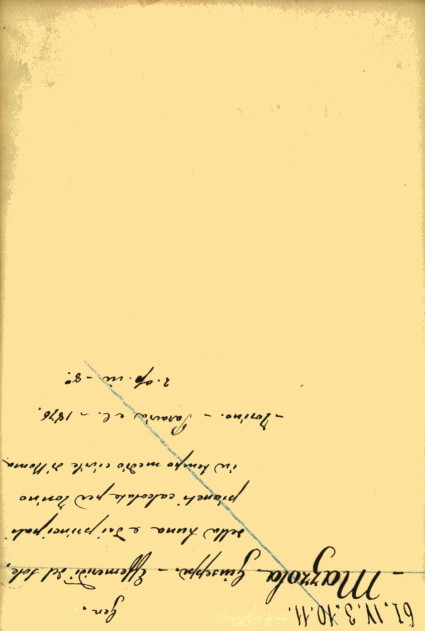 61.IV.3.10.11.
Gen.
- Mazzola Giuseppe. - Effemeridi del sole,
della luna e dei principali
pianeti calcolate per Torino
in tempo medio civile di Roma
- Torino. - Paravia e C. - 1876.
2. op. in - 8º